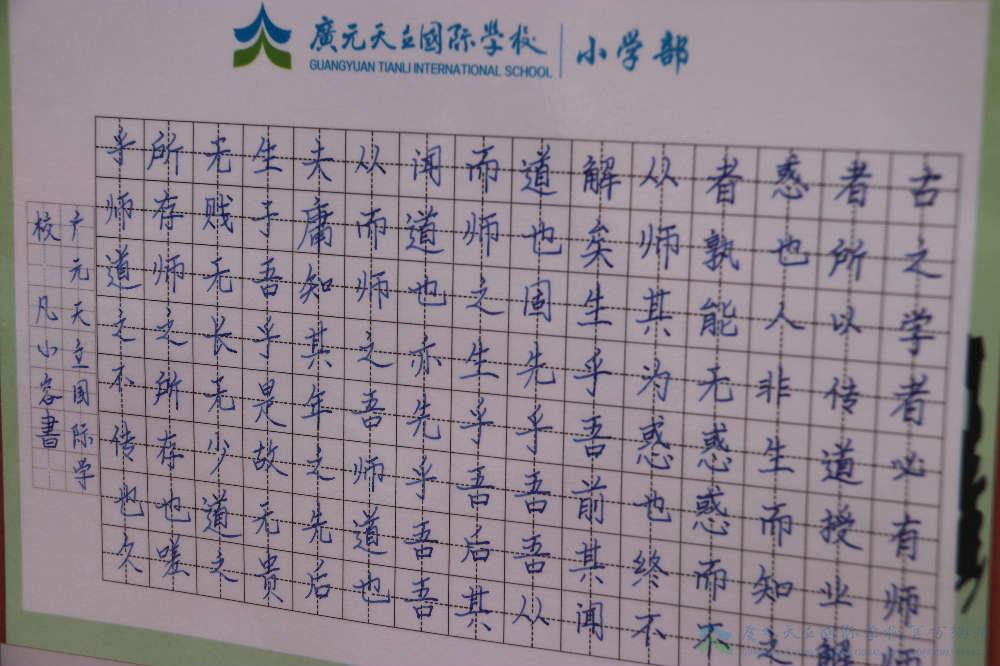 廣元天立國际學校 小学部
GUANGYUAN TIANLI INTERNATIONAL SCHOOL
古之学者必有师师
者所以传道授业解
惑也人非生而知之
者孰能无惑惑而不
从师其为惑也终不
解矣生乎吾前其闻
道也固先乎吾吾从
而师之生乎吾后其
闻道也亦先乎吾吾
从而师之吾师道也
夫庸知其年之先后
生于吾乎是故无贵
无贱无长无少道之
所存师之所存也嗟
乎师道之不传也久
广元天立国际学
校凡小容書